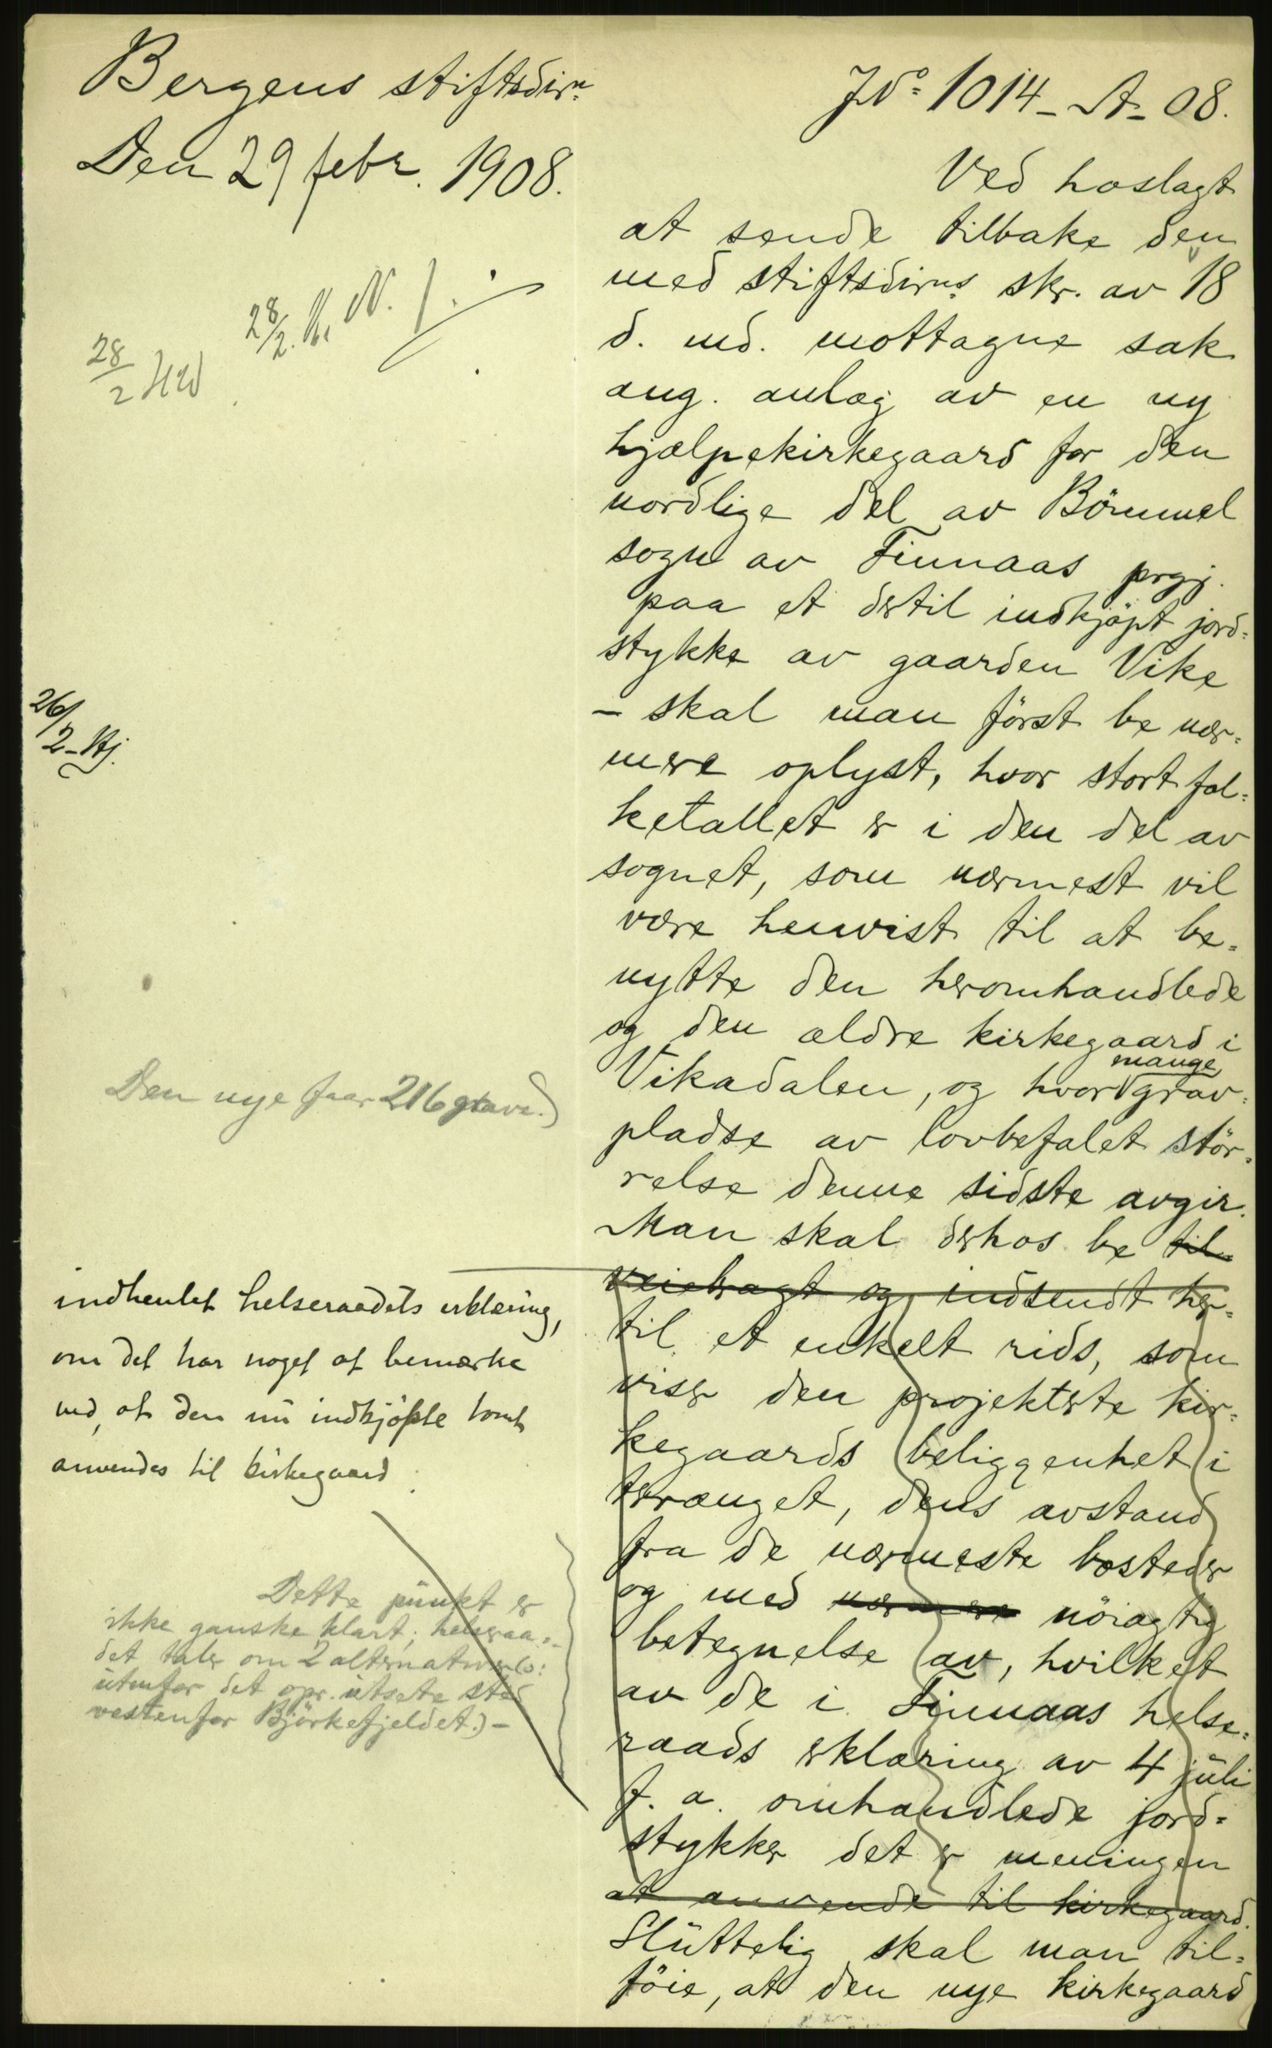 Bergens stiftsdirn
Den 29 febr. 1908.
28/2. N.
28/2 HW
26/2 - Kj.
Den nye faar 216 grave.)
indhentet helseraadets erklæring,
om det har noget at bemærke
ved, at den nu indkjøpte tomt
anvendes til kirkegaard
Dette punkt er
ikke ganske klart; helseraa=
det taler om 2 alternativer:
utenfor det opr. utsete sted
vestenfor Björkefjeldet.) -
JNo 1014 - A - 08.
Ved hoslagt
at sende tilbake den
med stiftsdirns skr. av 18
d. md. mottagne sak
ang. anlæg av en ny
hjælpekirkegaard for den
nordlige del av Bömmel
sogn av Finnaas prgj.
paa et dertil indkjöpt jord=
stykke av gaarden Vike
- skal man först be nær=
mere oplyst, hvor stort fol=
ketallet er i den del av
sognet, som nærmest vil
være henvist til at be=
nytte den heromhandlede
og den ældre kirkegaard i
Vikadalen, og hvor mange grav=
pladse av lovbefalet stör=
relse denne sidste avgir.
Man skal derhos be til=
veiebragt og indsendt her=
til et enkelt rids, som
viser den projekterte kir=
kegaards beliggenhet i
terrænget, dens avstand
fra de nærmeste bosteder
og med nærmere nöiagtig
betegnelse av, hvilket
av de i Finnaas helse=
raads erklæring av 4 juli
f. a. omhandlede jord=
stykker det er meningen
at anvende til kirkegaard.
Sluttelig skal man til=
föie, at den nye kirkegaard